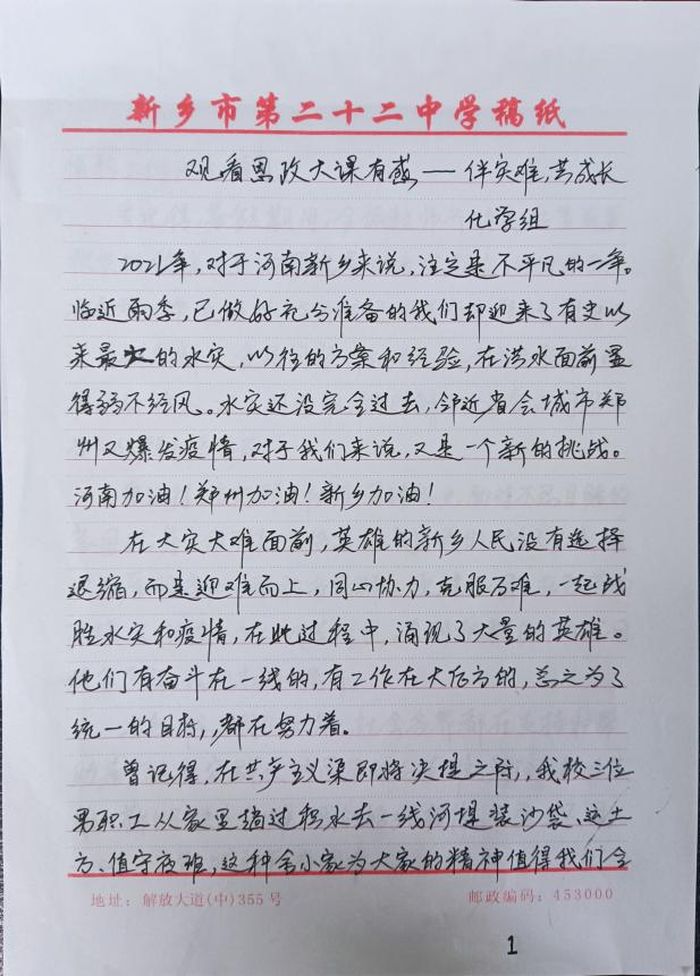 新乡市第二十二中学稿纸
观看思政大课有感——伴灾难,共成长
化学组
2021年,对于河南新乡来说,注定是不平凡的一年。
临近雨季,已做好充分准备的我们却迎来了有史以
来最大的水灾,以往的方案和经验,在洪水面前显
得弱不经风。水灾还没完全过去,邻近省会城市郑
州又爆发疫情,对于我们来说,又是一个新的挑战。
河南加油!郑州加油!新乡加油!
在大灾大难面前,英雄的新乡人民没有选择
退缩,而是迎难而上,同心协力,克服万难,一起战
胜水灾和疫情,在此过程中,涌现了大量的英雄。
他们有奋斗在一线的,有工作在大后方的,总之为了
统一的目标,都在努力着。
曾记得,在共产主义渠即将决堤之际,我校三位
男职工从家里趟过积水去一线河堤装沙袋、运土
方、值守夜班,这种舍小家为大家的精神值得我们全
地址:解放大道(中)355号
邮政编码:453000
1